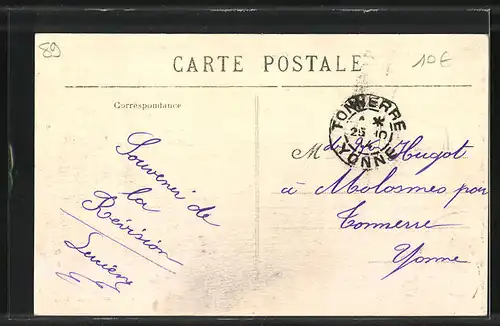 89
10€
CARTE POSTALE
Correspondance
TONNERRE
YONNE
Souvenir de
la
Révision
Lucien
M Hugot
à Molosmes par
Tonnerre
Yonne